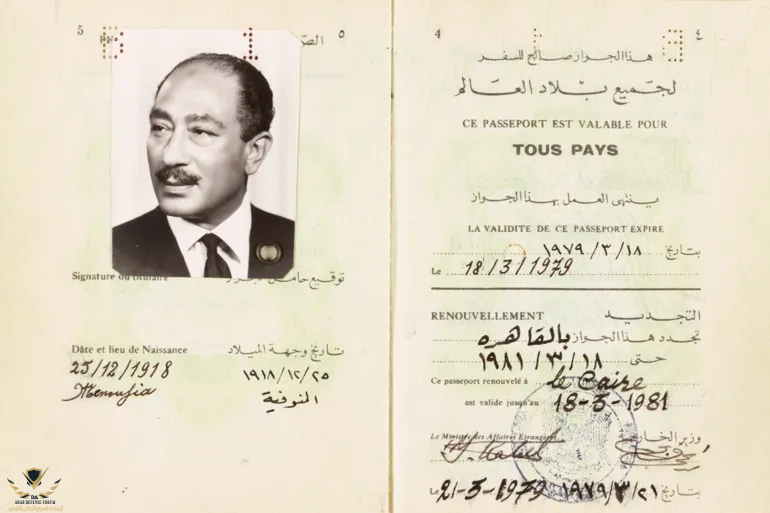 5
الص
٥
Signature du titulaire
توقيع حامل
Dâte et lieu de Naissance
تاريخ وجهة الميلاد
25/12/1918
١٩١٨/١٢/٢٥
Menoufia
المنوفية
ARAB DEFENSE FORUM
4
٤
هذا الجواز صالح للسفر
لجميع بلاد العالم
CE PASSEPORT EST VALABLE POUR
TOUS PAYS
ينتهى العمل بهذا الجواز
LA VALIDITE DE CE PASSEPORT EXPIRE
بتاريخ ١٩٧٩/٣/١٨
Le 18/3/1979
RENOUVELLEMENT
التجديد
تجدد هذا الجواز بالقاهره
حتى ١٩٨١/٣/١٨
Ce passeport renouvelé à le Caire
est valide jusqu'au 18-3-1981
Le Ministre des Affaires Etrangères
وزير الخارجية
Le 21-3-1979
بتاريخ ١٩٧٩/٣/٢١